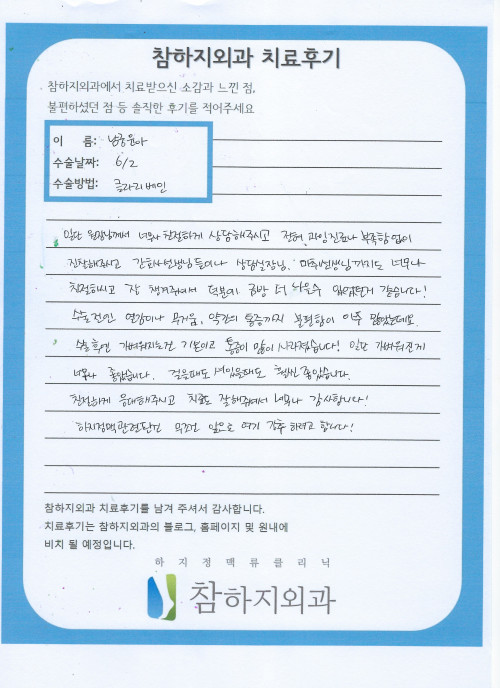 참하지외과 치료후기
참하지외과에서 치료받으신 소감과 느낀 점,
불편하셨던 점 등 솔직한 후기를 적어주세요
이 름: 남궁윤아
수술날짜: 6/2
수술방법: 클라리베인
일단 원장님께서 너무나 친절하게 상담해주시고 전혀 과잉진료나 부족함 없이
진찰해주시고 간호사선생님들이나 상담실장님, 마취선생님까지도 너무나
친절하시고 잘 챙겨주셔서 덕분에 금방 더 나을수 있었던거 같습니다!
수술 전엔 저림이나 무거움, 약간의 통증까지 불편함이 아주 많았는데요
수술 후엔 가벼워지는건 기본이고 통증이 많이 사라졌습니다! 일단 가벼워진게
너무나 좋았습니다. 걸을때도 서있을때도 훨씬 좋았습니다.
친절하게 응대해주시고 치료도 잘해주셔서 너무나 감사합니다!
하지정맥관련한건 무조건 앞으로 여기 강추 하려고 합니다!
참하지외과 치료후기를 남겨 주셔서 감사합니다.
치료후기는 참하지외과의 블로그, 홈페이지 및 원내에
비치 될 예정입니다.
하지정맥류클리닉
참하지외과